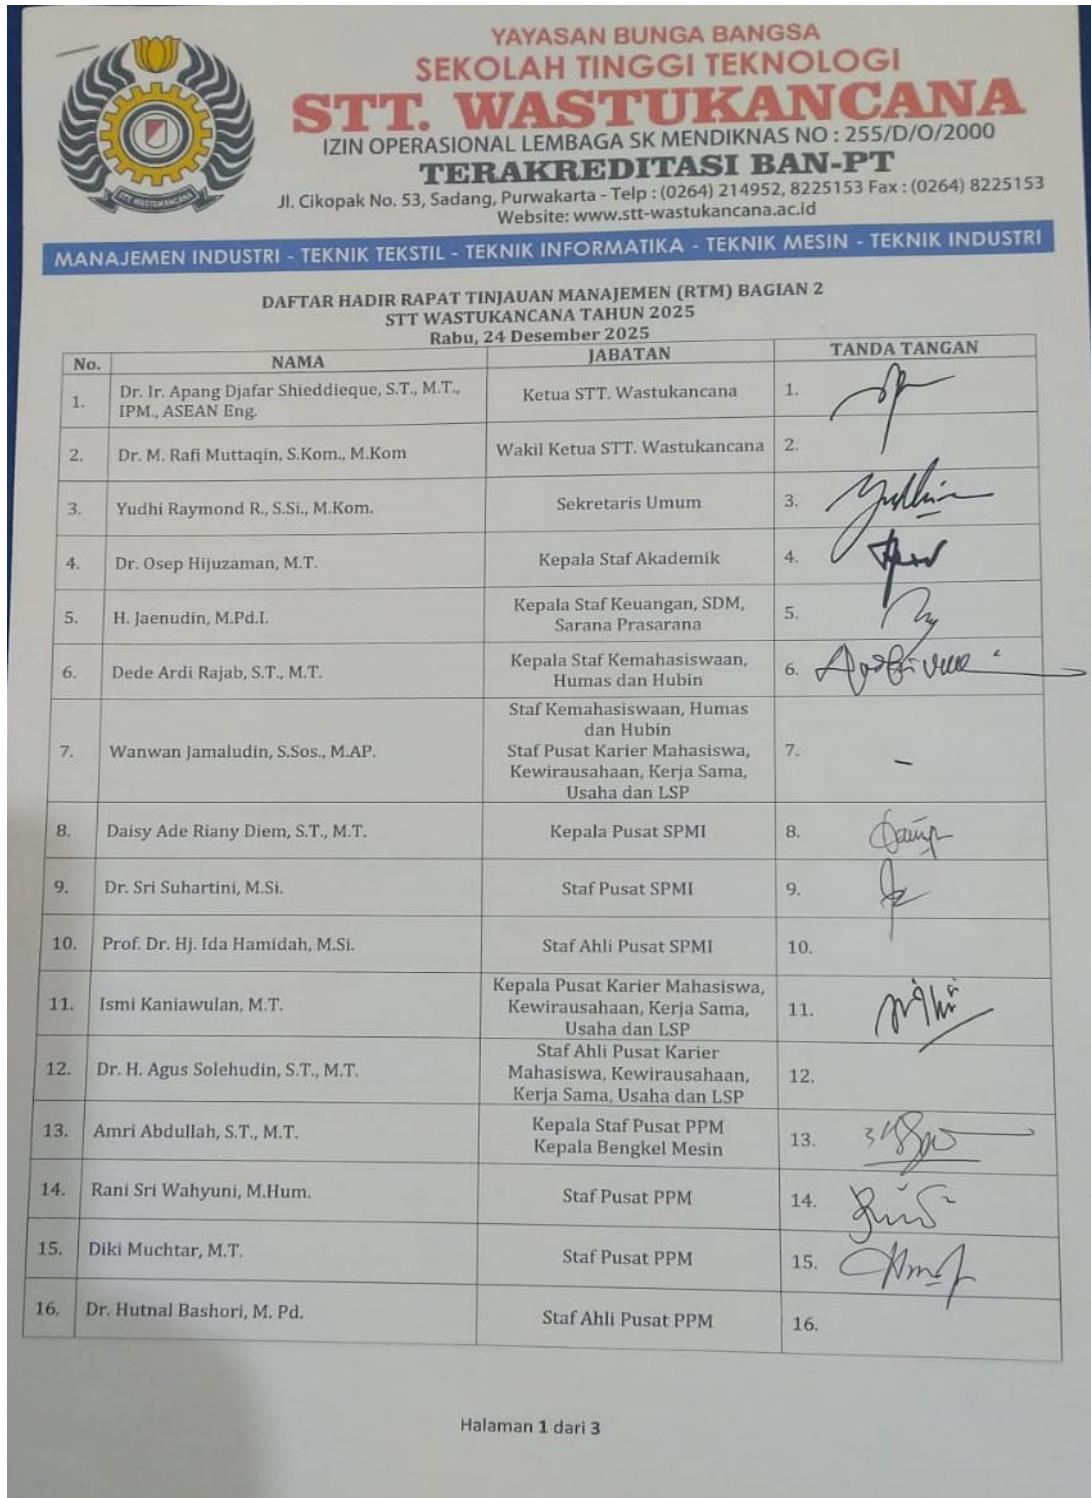 YAYASAN BUNGA BANGSA
SEKOLAH TINGGI TEKNOLOGI
STT. WASTUKANCANA
IZIN OPERASIONAL LEMBAGA SK MENDIKNAS NO : 255/D/O/2000
TERAKREDITASI BAN-PT
Jl. Cikopak No. 53, Sadang, Purwakarta - Telp : (0264) 214952, 8225153 Fax : (0264) 8225153
Website: www.stt-wastukancana.ac.id
STT WASTUKANCANA
MANAJEMEN INDUSTRI - TEKNIK TEKSTIL - TEKNIK INFORMATIKA - TEKNIK MESIN - TEKNIK INDUSTRI
DAFTAR HADIR RAPAT TINJAUAN MANAJEMEN (RTM) BAGIAN 2
STT WASTUKANCANA TAHUN 2025
Rabu, 24 Desember 2025
No. NAMA JABATAN TANDA TANGAN
1. Dr. Ir. Apang Djafar Shieddieque, S.T., M.T., Ketua STT. Wastukancana 1.
IPM., ASEAN Eng.
2. Dr. M. Rafi Muttaqin, S.Kom., M.Kom Wakil Ketua STT. Wastukancana 2.
3. Yudhi Raymond R., S.Si., M.Kom. Sekretaris Umum 3.
4. Dr. Osep Hijuzaman, M.T. Kepala Staf Akademik 4.
5. H. Jaenudin, M.Pd.I. Kepala Staf Keuangan, SDM, 5.
Sarana Prasarana
6. Dede Ardi Rajab, S.T., M.T. Kepala Staf Kemahasiswaan, 6.
Humas dan Hubin
Staf Kemahasiswaan, Humas
dan Hubin
7. Wanwan Jamaludin, S.Sos., M.AP. Staf Pusat Karier Mahasiswa, 7. -
Kewirausahaan, Kerja Sama,
Usaha dan LSP
8. Daisy Ade Riany Diem, S.T., M.T. Kepala Pusat SPMI 8.
9. Dr. Sri Suhartini, M.Si. Staf Pusat SPMI 9.
10. Prof. Dr. Hj. Ida Hamidah, M.Si. Staf Ahli Pusat SPMI 10.
Kepala Pusat Karier Mahasiswa,
11. Ismi Kaniawulan, M.T. Kewirausahaan, Kerja Sama, 11.
Usaha dan LSP
Staf Ahli Pusat Karier
12. Dr. H. Agus Solehudin, S.T., M.T. Mahasiswa, Kewirausahaan, 12.
Kerja Sama, Usaha dan LSP
13. Amri Abdullah, S.T., M.T. Kepala Staf Pusat PPM 13.
Kepala Bengkel Mesin
14. Rani Sri Wahyuni, M.Hum. Staf Pusat PPM 14.
15. Diki Muchtar, M.T. Staf Pusat PPM 15.
16. Dr. Hutnal Bashori, M. Pd. Staf Ahli Pusat PPM 16.
Halaman 1 dari 3